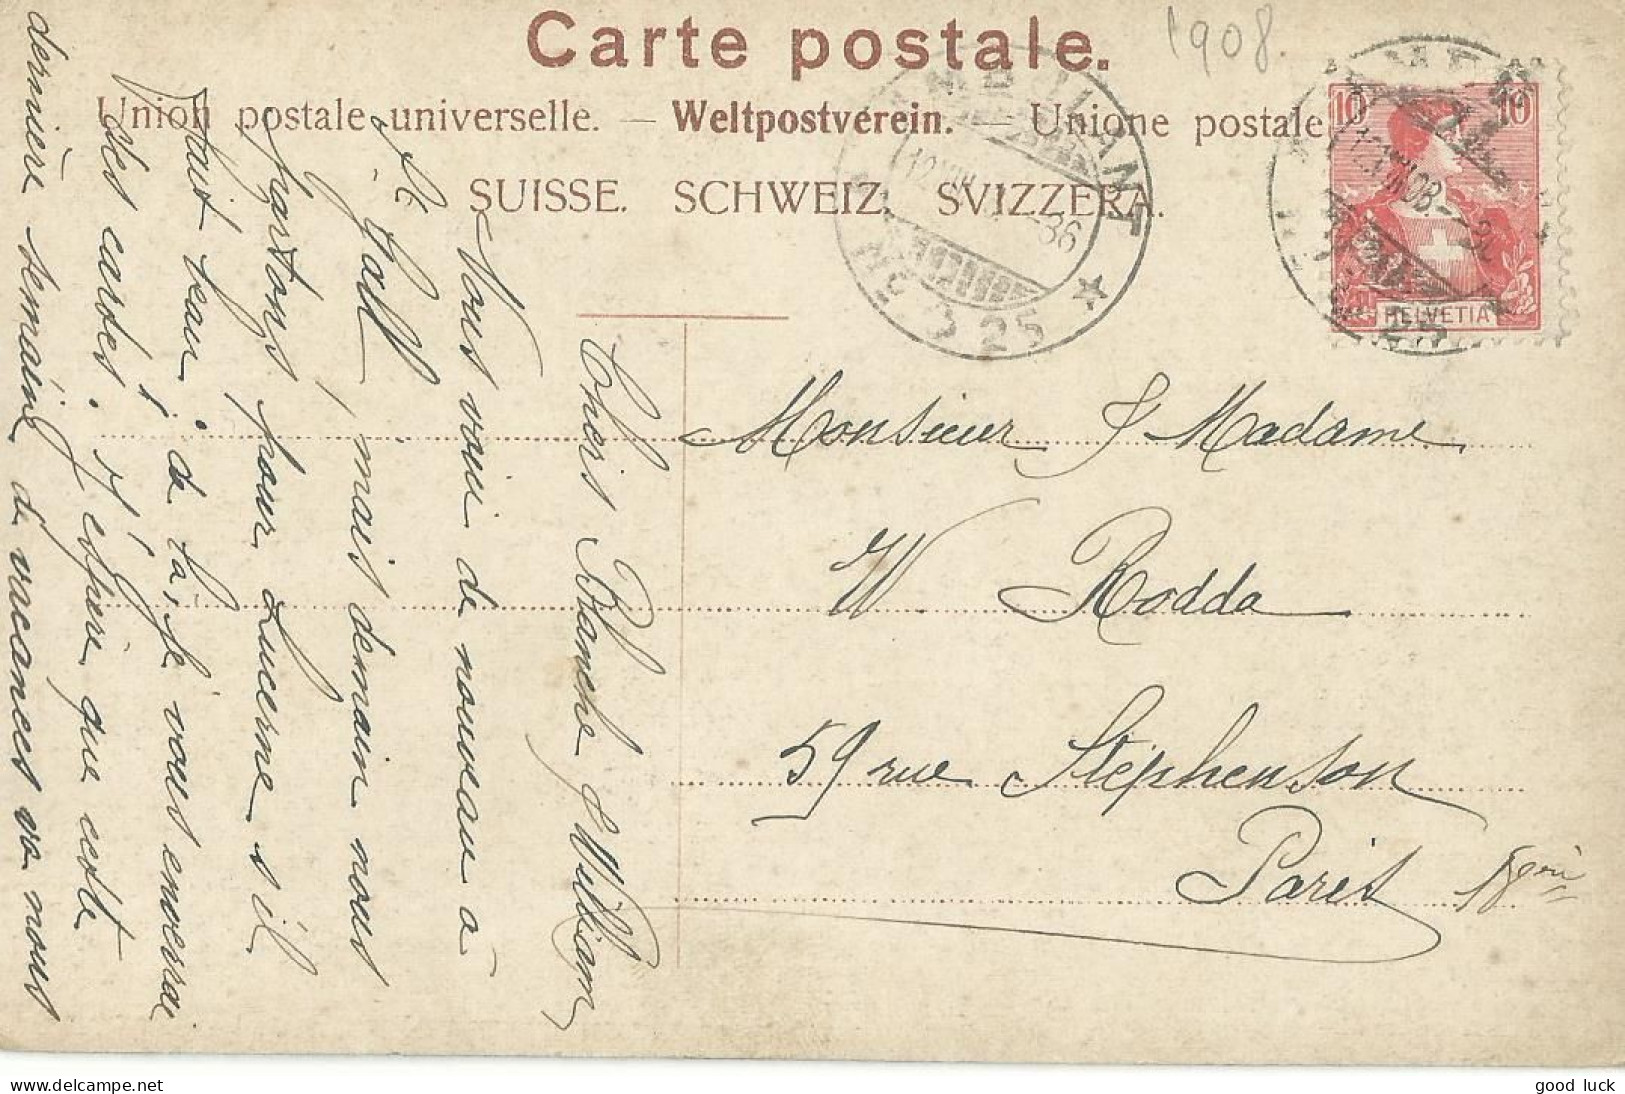 Carte postale.
1908.
Union postale universelle. — Weltpostverein. — Unione postale
SUISSE. SCHWEIZ. SVIZZERA.
AMBULANT
12 VIII
36
No 25
10 10
12 VIII 08.
HELVETIA
Monsieur & Madame
W. Rodda
59 rue Stéphenson
Paris 18ème
Chers Blanche & William
Vous voici de nouveau à
St. Gall, mais demain nous
partons pour Lucerne s'il
fait beau, de là, je vous enverrai
des cartes. J'espère que cette
dernière semaine de vaccances va nous
good luck